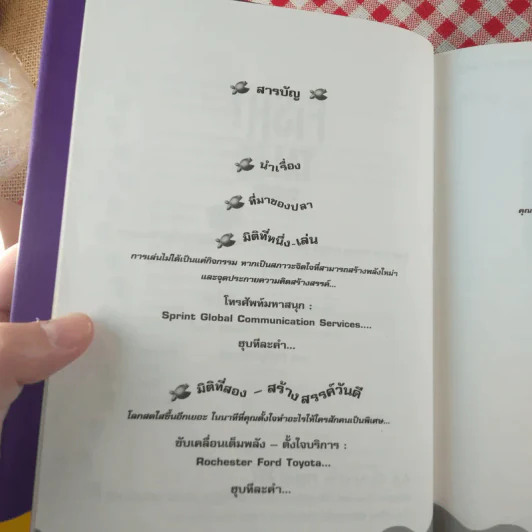 สารบัญ
นำเรื่อง
ที่มาของปลา
มิติที่หนึ่ง-เล่น
การเล่นไม่ได้เป็นแค่กิจกรรม หากเป็นสภาวะจิตใจที่สามารถสร้างพลังใหม่ๆ
และจุดประกายความคิดสร้างสรรค์...
โทรศัพท์มหาสนุก :
Sprint Global Communication Services....
ฮุบทีละคำ...
มิติที่สอง – สร้างสรรค์วันดี
โลกสดใสขึ้นอีกเยอะ ในนาทีที่คุณตั้งใจทำอะไรให้ใครสักคนเป็นพิเศษ...
ขับเคลื่อนเต็มพลัง – ตั้งใจบริการ :
Rochester Ford Toyota...
ฮุบทีละคำ...
คุณ